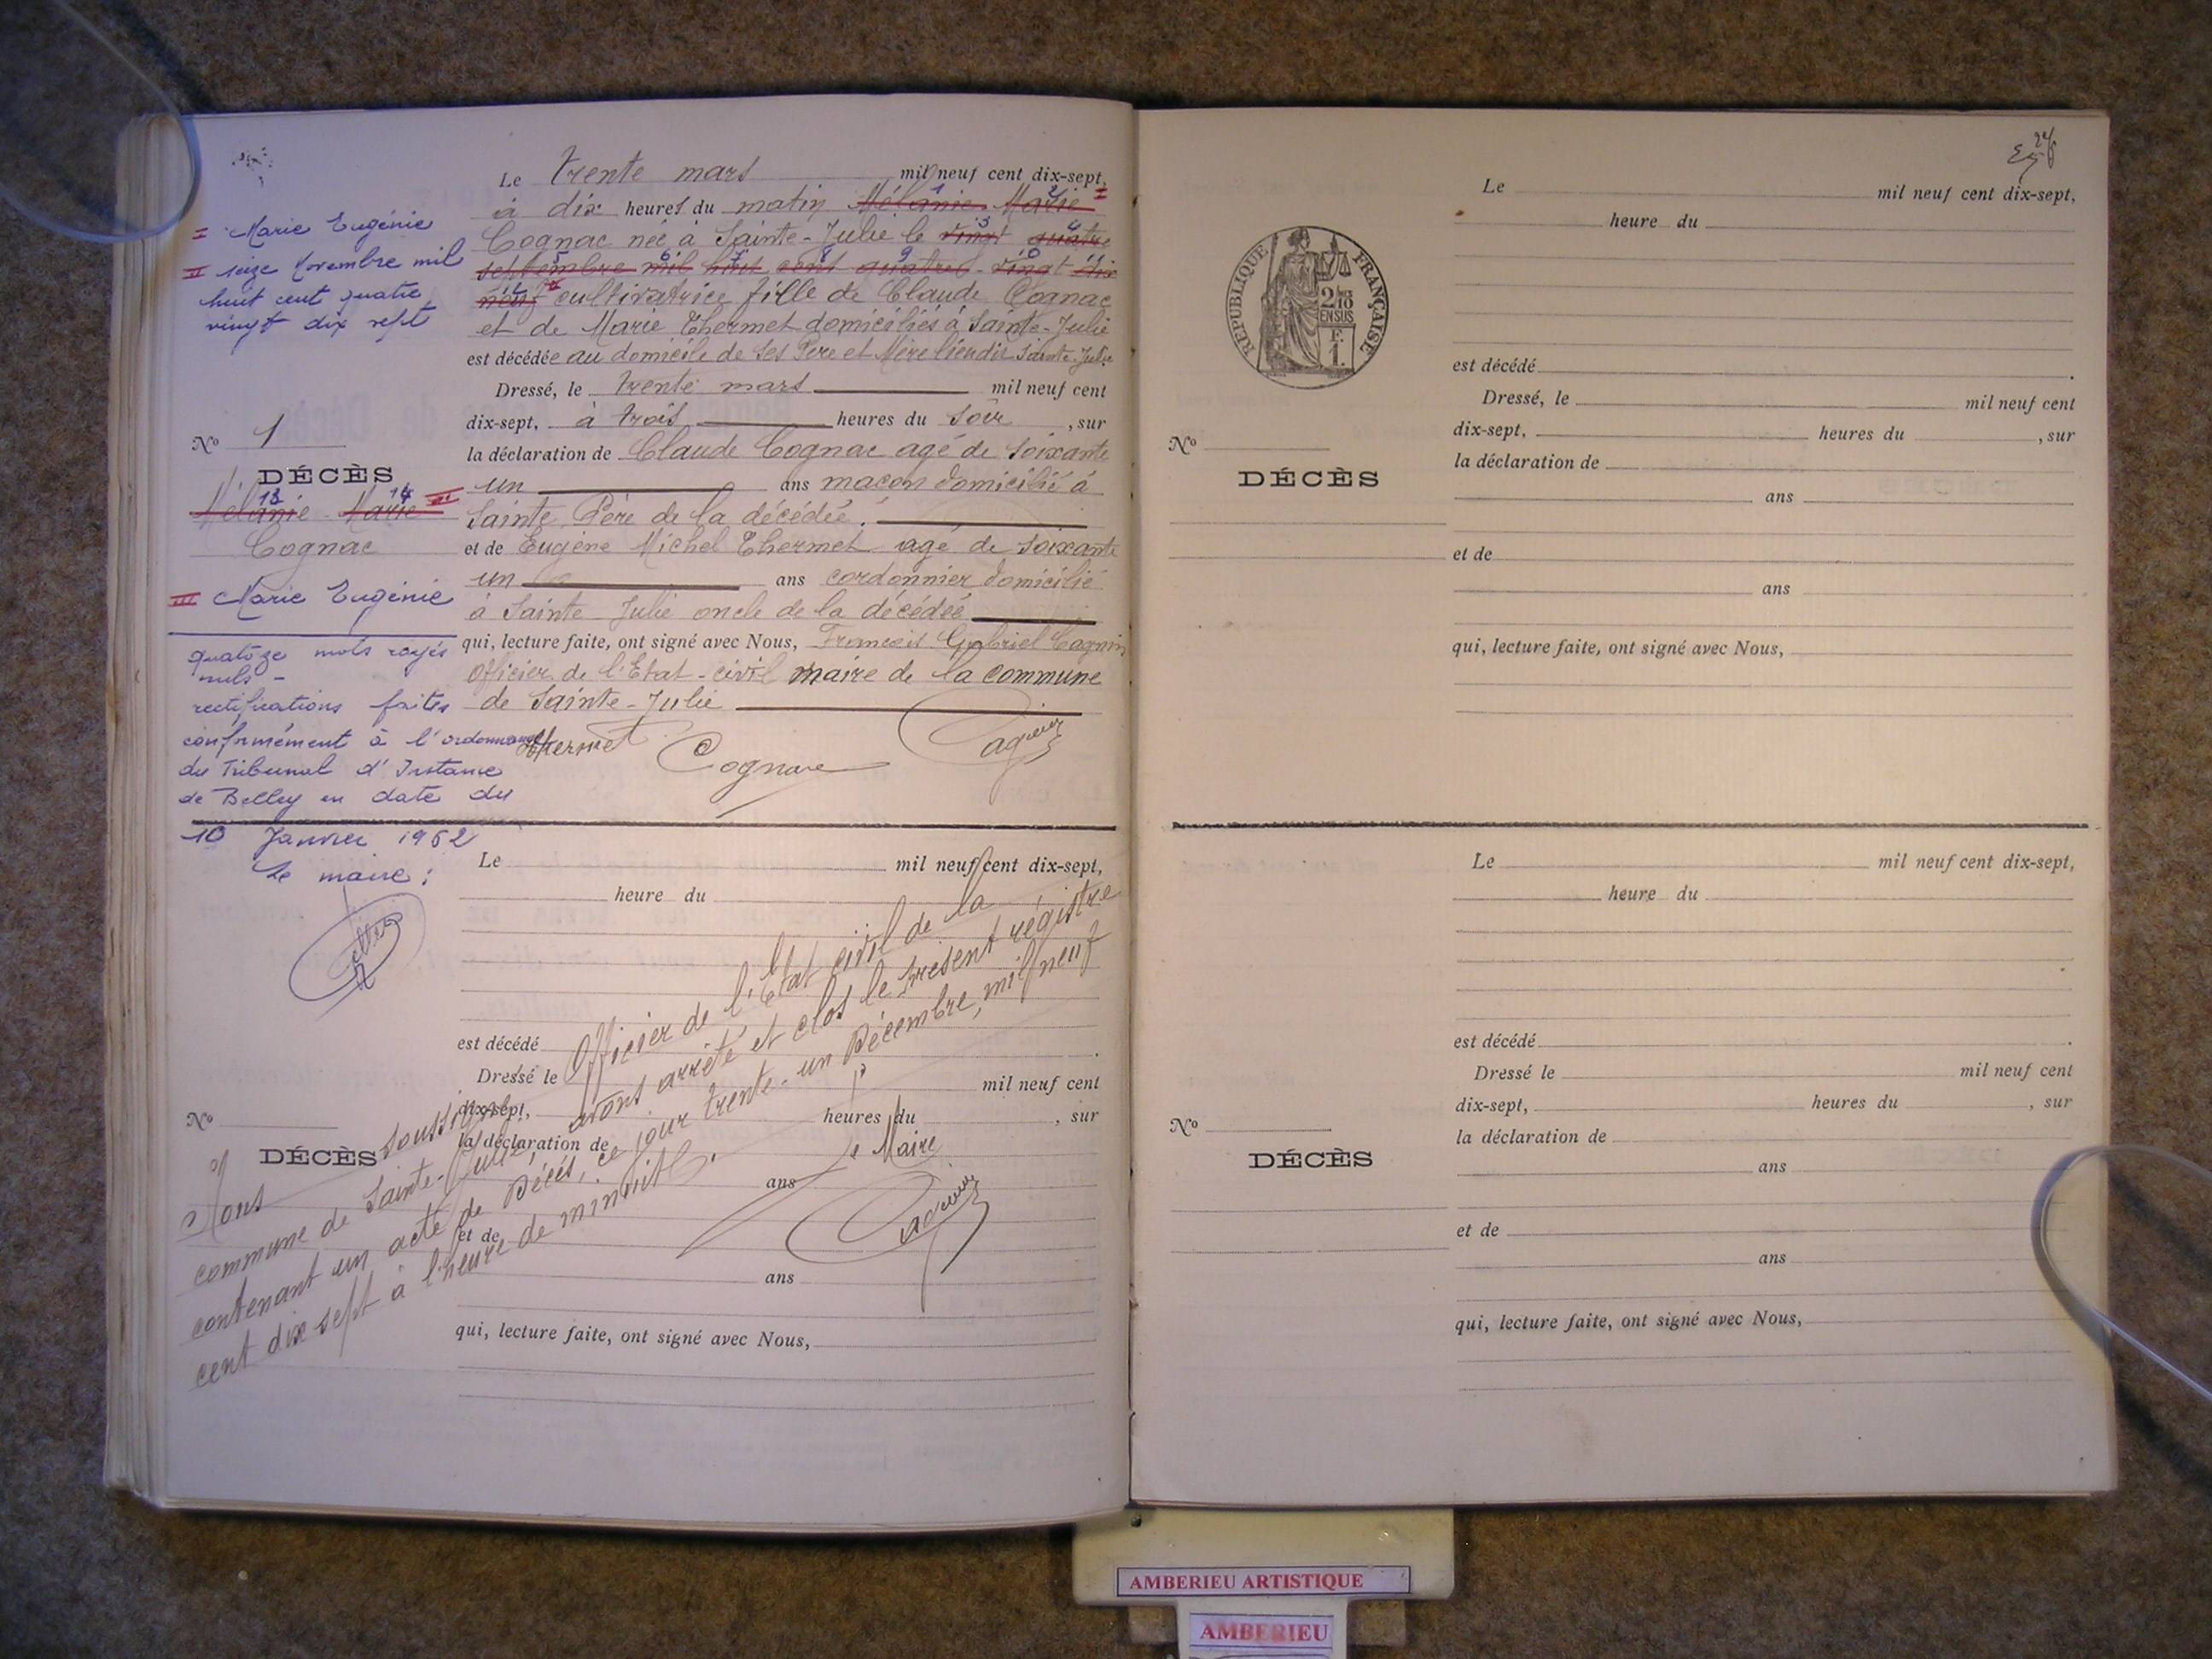 Le trente mars mil neuf cent dix-sept,
à dix heures du matin Mélanie Marie I
Cognac née à Sainte-Julie le vingt quatre
septembre mil huit cent quatre-vingt dix
neuf II cultivatrice fille de Claude Cognac
et de Marie Thermet domiciliés à Sainte-Julie
est décédée au domicile de ses Père et Mère liendit Sainte-Julie
Dressé, le trente mars mil neuf cent
dix-sept, à trois heures du soir, sur
la déclaration de Claude Cognac agé de soixante
un ans maçon domicilié à
Sainte Père de la décédée.
et de Eugène Michel Thermet agé de soixante
un ans cordonnier domicilié
à Sainte Julie oncle de la décédée
qui, lecture faite, ont signé avec Nous, Francois Gabriel Cagnin
officier de l'Etat-civil maire de la commune
de Sainte-Julie
Thermet Cognac Cagnin
I Marie Eugénie
II seize Novembre mil
huit cent quatre
vingt dix sept
No 1
DÉCÈS
Mélanie Marie III
Cognac
III Marie Eugénie
quatoze mots rayés
nuls -
rectifications faites
conformément à l'ordonnance
du Tribunal d'Instance
de Belley en date du
10 Janvier 1962
Le maire :
Le mil neuf cent dix-sept,
heure du
est décédé
Dressé le mil neuf cent
dix-sept, heures du , sur
la déclaration de
ans
et de
ans
qui, lecture faite, ont signé avec Nous,
No
DÉCÈS
Nous soussigné, Officier de l'Etat civil de la
commune de Sainte-Julie avons arrêté et clos le présent régistre
contenant un acte de Décés, ce jour trente-un Décembre, mil neuf
cent dix sept à l'heure de minuit.
Le Maire
Cagnin
Le mil neuf cent dix-sept,
heure du
RÉPUBLIQUE FRANÇAISE
2/10mes
EN SUS
F.
1.
est décédé
Dressé, le mil neuf cent
dix-sept, heures du , sur
la déclaration de
ans
et de
ans
qui, lecture faite, ont signé avec Nous,
No
DÉCÈS
Le mil neuf cent dix-sept,
heure du
est décédé
Dressé le mil neuf cent
dix-sept, heures du , sur
la déclaration de
ans
et de
ans
qui, lecture faite, ont signé avec Nous,
No
DÉCÈS
AMBERIEU ARTISTIQUE
AMBERIEU